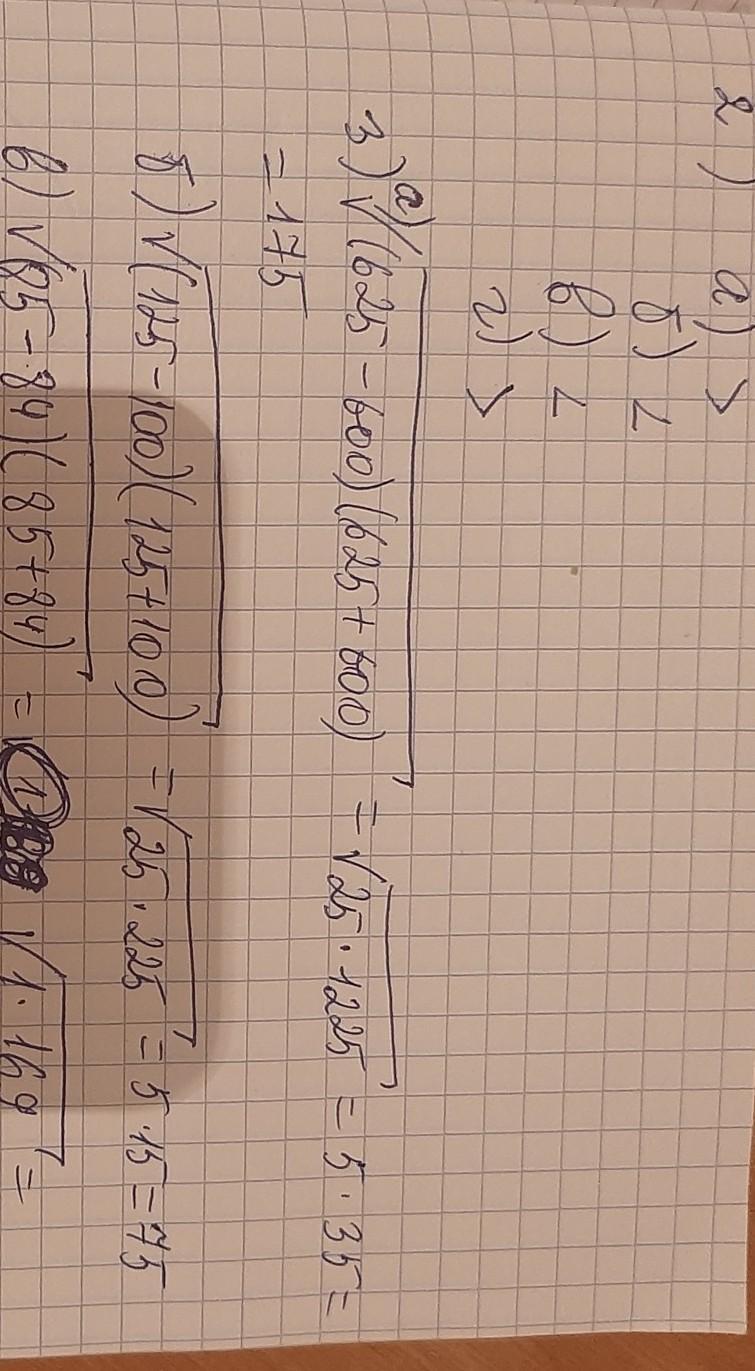 2) а) >
б) <
в) <
г) >
3) а) √(625 - 600)(625 + 600) = √25 · 1225 = 5 · 35 =
= 175
б) √(125 - 100)(125 + 100) = √25 · 225 = 5 · 15 = 75
в) √(85 - 84)(85 + 84) = √1 · 169 =